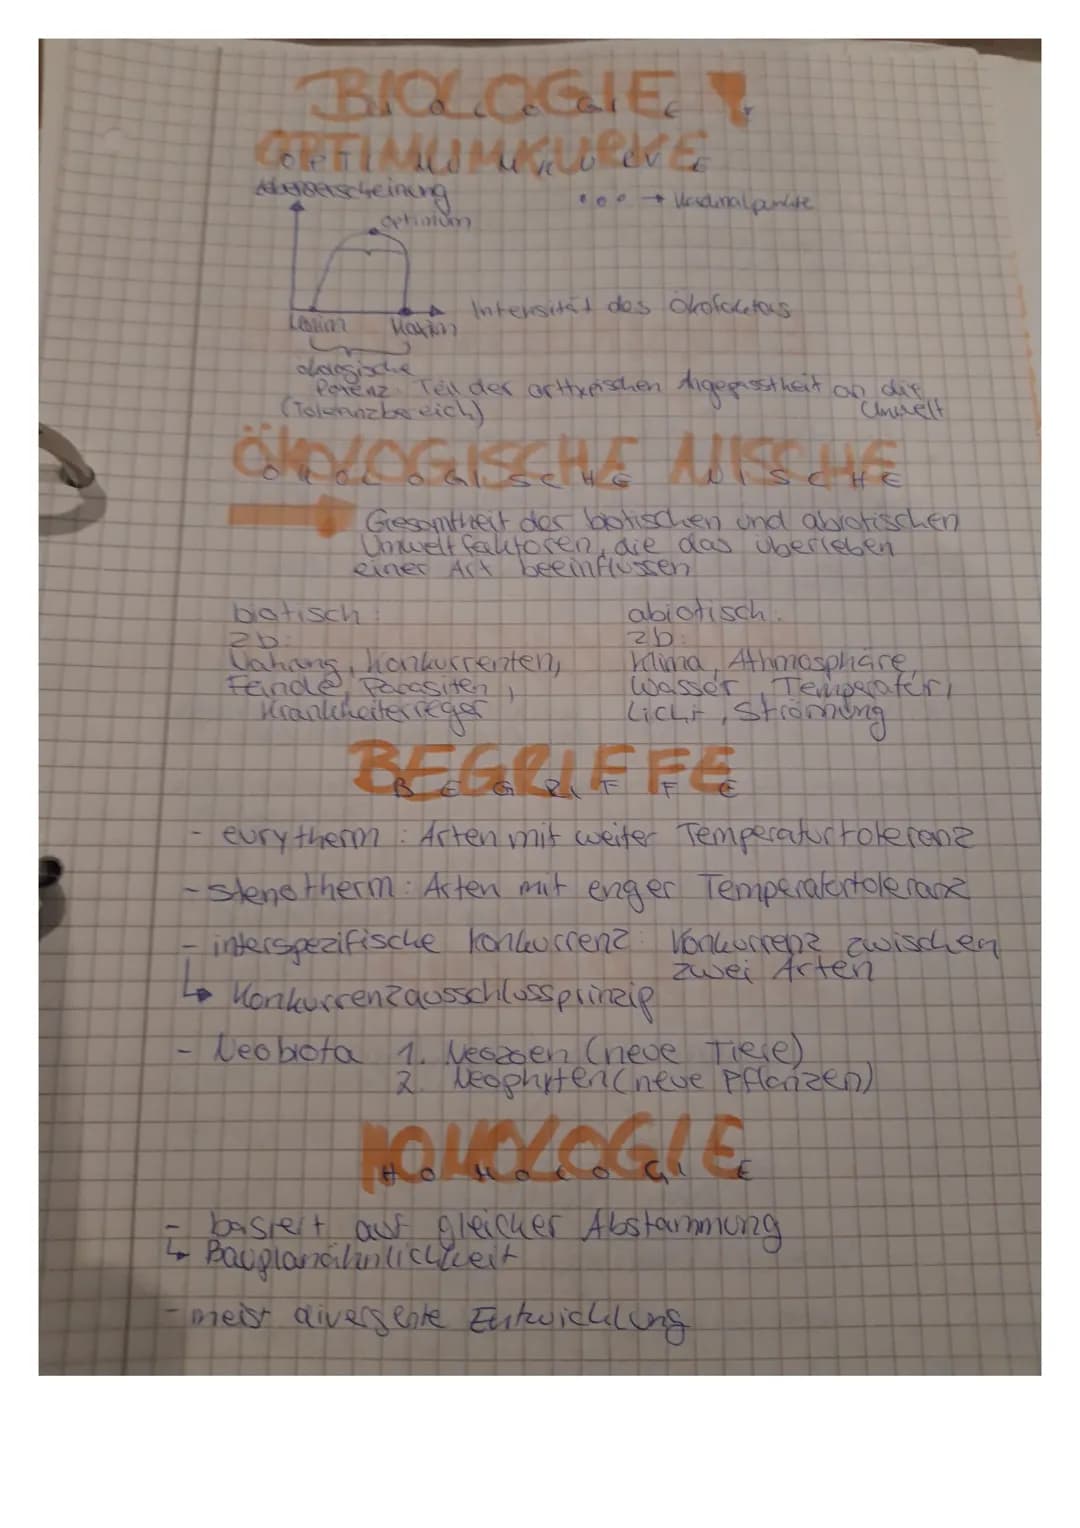 BIOLOGIE
OPTIMUMKURVE
Lebenserscheinung
→ Kardinalpunkte
Optimum
Intensität des Ökofaktors
ökologische
Potenz: Teil der arttypischen Angepasstheit an die
(Toleranzbereich) Umwelt
ÖKOLOGISCHE NISCHE
Gesamtheit der biotischen und abiotischen
Umweltfaktoren, die das überleben
einer Art beeinflussen
biotisch: abiotisch:
zb: zb:
Nahrung, Konkurrenten, Klima, Athmosphäre,
Feinde, Parasiten, Wasser, Temperatur,
Krankheiterreger Licht, Strömung
BEGRIFFE
- eurytherm: Arten mit weiter Temperaturtoleranz
- stenotherm: Arten mit enger Temperaturtoleranz
- interspezifische Konkurrenz: Konkurrenz zwischen
zwei Arten
↳ Konkurrenzausschlussprinzip
- Neobiota 1. Neozoen (neue Tiere)
2. Neophyten (neue Pflanzen)
HOMOLOGIE
- basiert auf gleicher Abstammung
↳ Bauplanähnlichkeit
- meist divergente Entwicklung